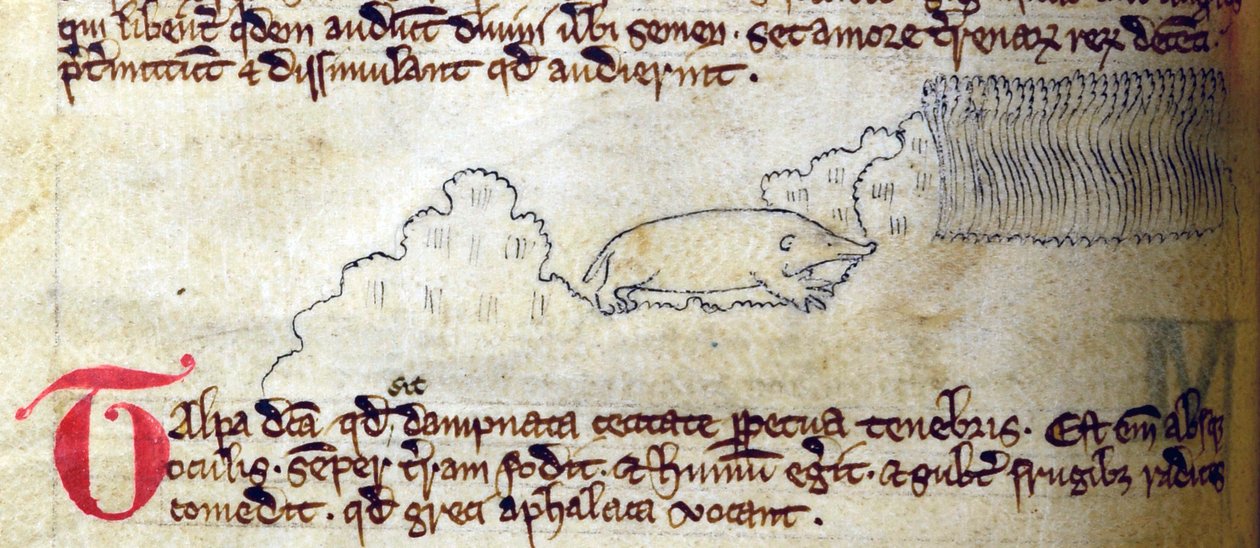 qui libent͛ qͥdem audiūt diuini ūbi semen · set amore t͛renaꝝ reꝝ
p̄t͛mittūt ⁊ dissimulant qd̄ audierint .
sit
Talpa dc̄a qd̄ dampnata cecitate ꝑpetua tenebris . Est em̄ absqꝫ
oculis . sēper t͛ram fodit . et humū eg͛it . et subt͛ frugibꝫ radices
comedit . qd̄ greci aphalaca vocant .